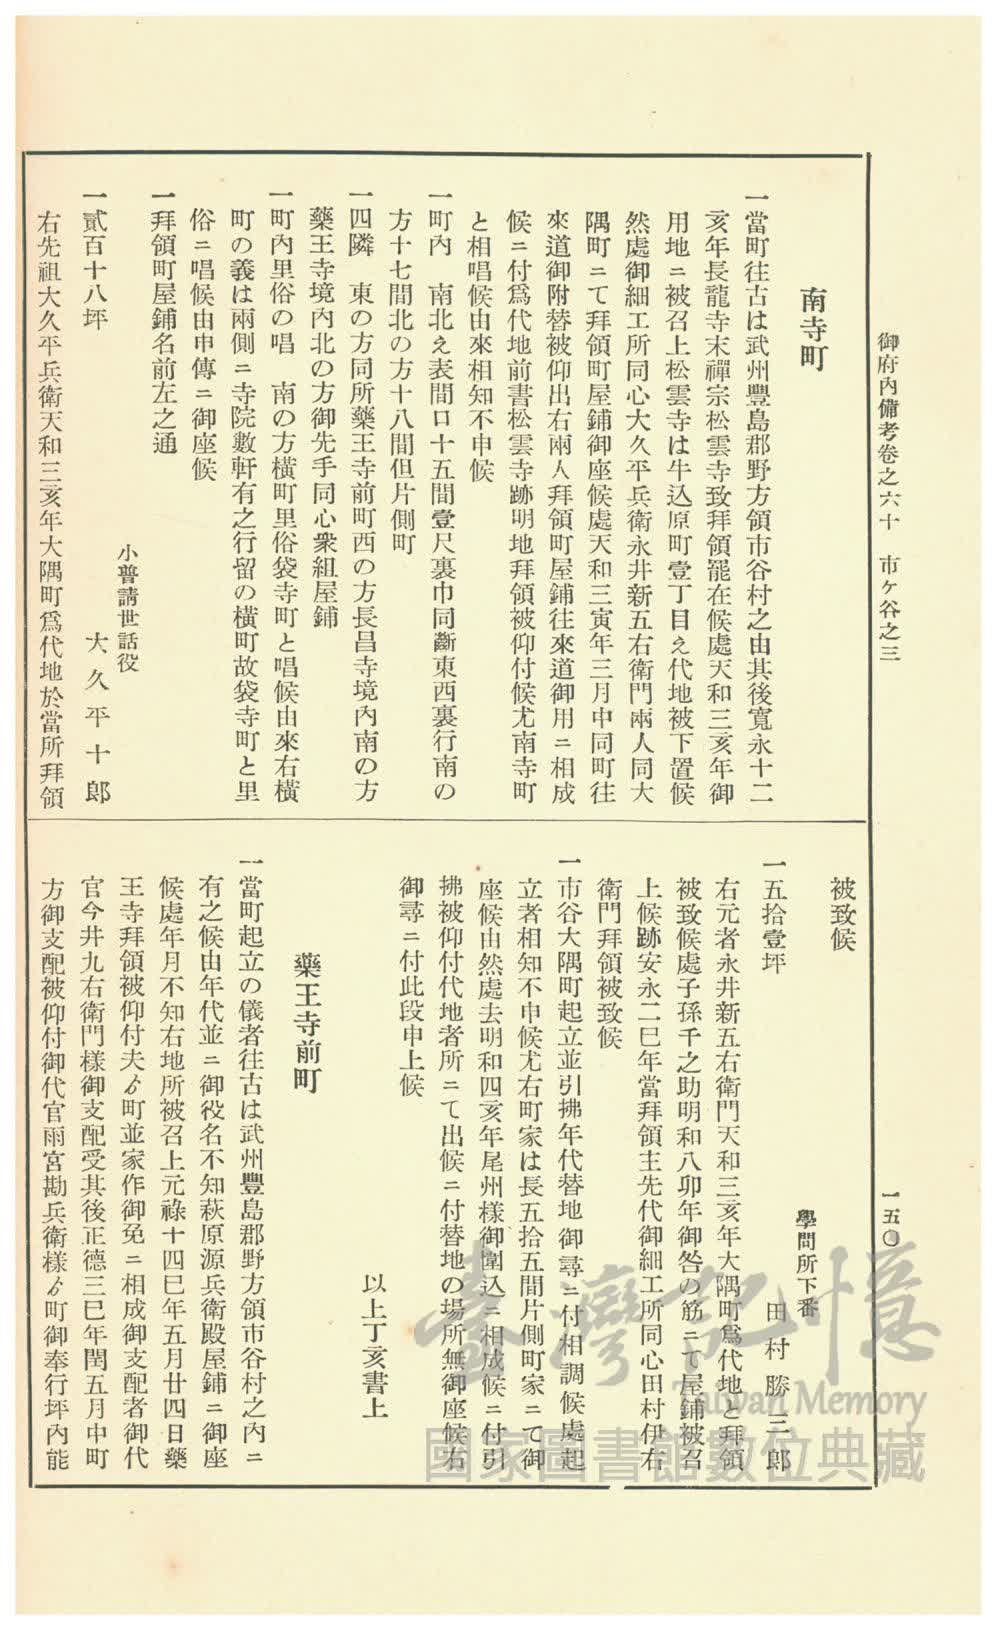 御府內備考卷之六十　市ケ谷之三
一五〇
南寺町
一當町往古は武州豐島郡野方領市谷村之由其後寬永十二
亥年長龍寺末禪宗松雲寺致拜領罷在候處天和三亥年御
用地ニ被召上松雲寺は牛込原町壹丁目え代地被下置候
然處御細工所同心大久平兵衛永井新五右衛門兩人同大
隅町ニて拜領町屋鋪御座候處天和三寅年三月中同町往
來道御附替被仰出右兩人拜領町屋鋪往來道御用ニ相成
候ニ付爲代地前書松雲寺跡明地拜領被仰付候尤南寺町
と相唱候由來相知不申候
一町內　南北え表間口十五間壹尺裏巾同斷東西裏行南の
方十七間北の方十八間但片側町
一四隣　東の方同所藥王寺前町西の方長昌寺境內南の方
藥王寺境內北の方御先手同心衆組屋鋪
一町內里俗の唱　南の方橫町里俗袋寺町と唱候由來右橫
町の義は兩側ニ寺院數軒有之行留の橫町故袋寺町と里
俗ニ唱候由申傳ニ御座候
一拜領町屋鋪名前左之通
小普請世話役
一貳百十八坪　大久平十郞
右先祖大久平兵衛天和三亥年大隅町爲代地於當所拜領
被致候
學問所下番
一五拾壹坪　田村勝三郞
右元者永井新五右衛門天和三亥年大隅町爲代地と拜領
被致候處子孫千之助明和八卯年御咎の筋ニて屋鋪被召
上候跡安永二巳年當拜領主先代御細工所同心田村伊右
衛門拜領被致候
一市谷大隅町起立並引拂年代替地御尋ニ付相調候處起
立者相知不申候尤右町家は長五拾五間片側町家ニて御
座候由然處去明和四亥年尾州樣御圍込ニ相成候ニ付引
拂被仰付代地者所ニて出候ニ付替地の場所無御座候右
御尋ニ付此段申上候
以上丁亥書上
藥王寺前町
一當町起立の儀者往古は武州豐島郡野方領市谷村之內ニ
有之候由年代並ニ御役名不知萩原源兵衛殿屋鋪ニ御座
候處年月不知右地所被召上元祿十四巳年五月廿四日藥
王寺拜領被仰付夫ゟ町並家作御免ニ相成御支配者御代
官今井九右衛門樣御支配受其後正德三巳年閏五月中町
方御支配被仰付御代官雨宮勘兵衛樣ゟ町御奉行坪內能
臺灣記憶
Taiwan Memory
國家圖書館數位典藏